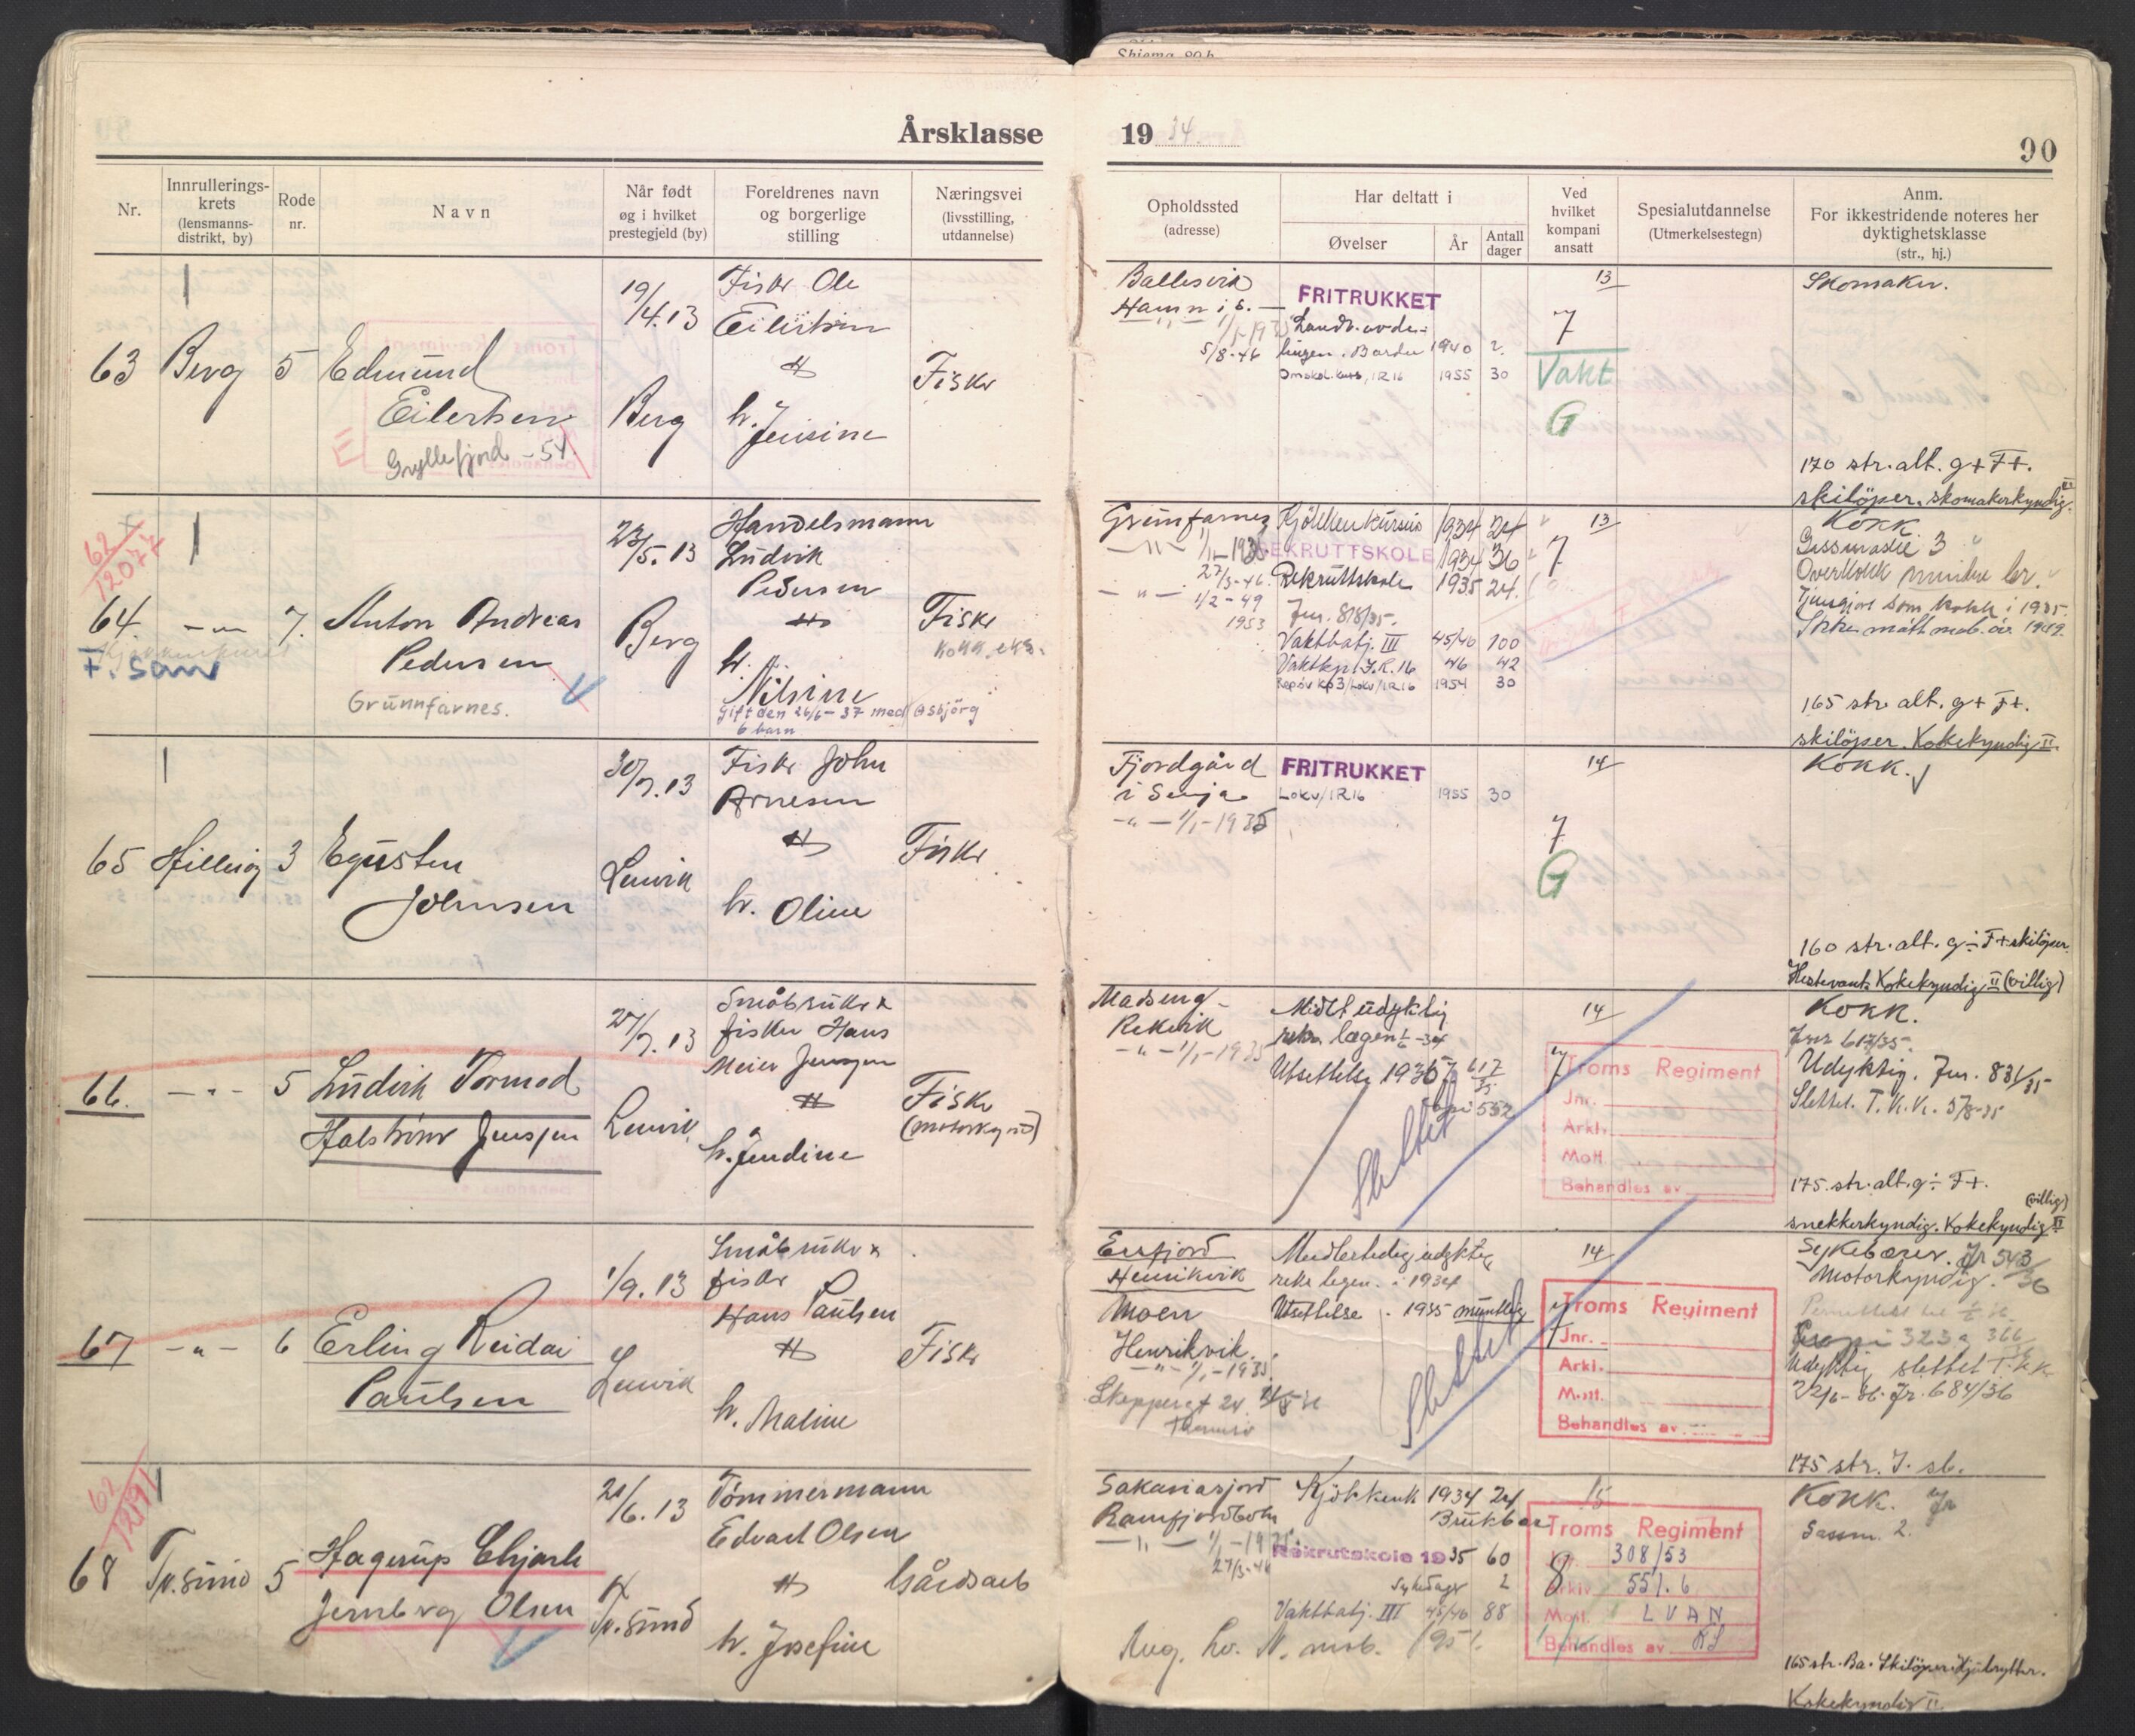 Skjema 90 b
Årsklasse 1934.
90
Nr.
Innrullerings-
krets
(lensmanns-
distrikt, by)
Rode
nr.
Navn
Når født
og i hvilket
prestegjeld (by)
Foreldrenes navn
og borgerlige
stilling
Næringsvei
(livsstilling,
utdannelse)
Opholdssted
(adresse)
Har deltatt i
Øvelser
År
Antall
dager
Ved
hvilket
kompani
ansatt
Spesialutdannelse
(Utmerkelsestegn)
Anm.
For ikkestridende noteres her
dyktighetsklasse
(str., hj.)
63 Berg 5 Edmund
Eilertsen
Gryllefjord - 54
19/4.13
Berg
Fisker Ole
Eilertsen
h. Jensine
Fisker
Ballesvik
Hamn i S.
5/8-46
FRITRUKKET
Landv. avde-
lingen. Bardu 1940 2
Omskol. kurs, IR16 1955 30
13
7
Vakt
G
Skomaker.
170 str. alt. g + F+.
skilöper. skomakerkyndig
62
12077
64. -„- 7. Anton Andreas
Pedersen
Grunnfarnes.
F. San
23/5.13
Berg
Handelsmann
Ludvik
Pedersen
h.
Nilsine
Gift den 26/6-37 med Asbjörg
6 barn
Fisker
Kokk eks.
Grunfarnes
-„- 1/1-1935
27/3-46.
-„- 1/2-49
1953
Kjökkenkursus 1934 24
REKRUTTSKOLE 1934 36
Rekruttskole 1935 24.
Jnr. 818/35.
Vaktbatj. III 45/46 100
Vaktkp. I.R. 16 46 42
Repöv Kp3/Lokv/IR16 1954 30
13
7
Kokk
Gassmaske 3
Overkokk mindre br.
Tjenegjort som kokk i 1935.
Ikke mött mob. öv. 1949.
165 str. alt. g + F+.
skilöper. Kokekyndig II.
65 Hillesöy 3 Egusten
Johnsen
30/7.13
Lenvik
Fisker John
Arnesen
h. Oline
Fisker
Fjordgård
i Senja
-„- 1/1-1935
FRITRUKKET
Lokv/IR16 1955 30
14
7
G
Kokk.
160 str. alt. g ÷ F+ skilöper
Hestevant. Kokekyndig II (villig)
66. -„- 5 Ludvik Tormod
Halstein Jensen
27/7.13
Lenvik
Småbruker &
fisker Hans
Meier Jensen
h. Jendine
Fisker
(motorkynd)
Madseng-
Rekvik
-„- 1/1-1935
Midlt udyktig
rekr. lægen 1/6-34
Utsettelse 1936
617/35
552
Slettet
14
7
Troms Regiment
Jnr.
Arkl.
Mott.
Behandles av
Kokk.
Jnr 617/35.
Udyktig. Jnr. 831/35
Slettet. T.K.K. 5/8-35
175. str. alt. g ÷ F+.
(villig)
snekkerkyndig. Kokekyndig II
67 -„- 6 Erling Reidar
Paulsen
1/9.13
Lenvik
Småbruker &
fisker
Hans Paulsen
h. Maline
Fisker
Ersfjord
Henrikvik
Moen
Henrikvik.
-„- 1/1-1935
Skippergt 24
Tromsö
Midlertidig udyktig
rekr legen. i 1934
Utsettelse i 1935 muntlig
Slettet
14
7
Troms Regiment
Jnr.
Arkl.
Mott.
Behandles av
Sykebærer. Jr 543/36
Motorkyndig.
323 366
Udyktig slettet T.K.K.
22/6-36. Jr. 684/36
175 str. I. sb.
62
68 Tr.sund 5 Hagerup Charli
Jernberg Olsen
21/6.13
Tr.sund
Tömmermann
Edvart Olsen
h. Josefine
Gårdsarb
Sakariasjord
Ramfjordbotn
-„- 1/1-1935
27/3-46
Kjökkenk 1934 24
Brukbar
Rekrutskole 1935 60
Sykedager 2
Vaktbatj. III 45/46 88
Avg. Hv. N. mob. 1951.
15
8
Troms Regiment
308/53
Arkiv 551.6
Mott. LVAN
Behandles av KS
Kokk.
Gassm. 2.
165 str. Ba. Skilöper. Hjulrytter.
Kokekyndig II.